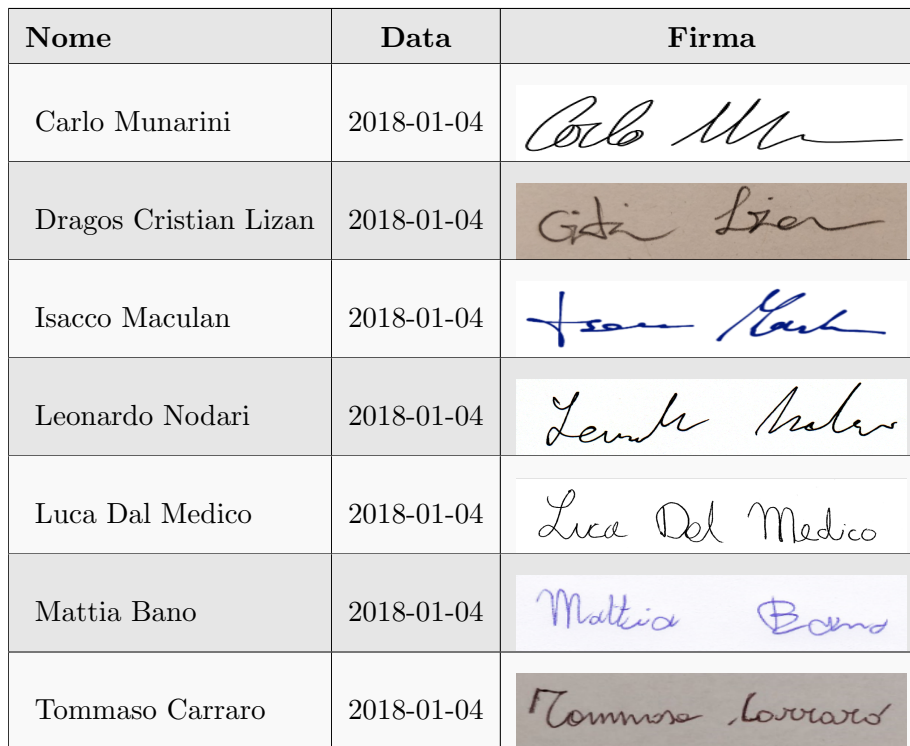 Nome Data Firma
Carlo Munarini 2018-01-04 Carlo
Dragos Cristian Lizan 2018-01-04
Isacco Maculan 2018-01-04
Leonardo Nodari 2018-01-04
Luca Dal Medico 2018-01-04 Luca Dal Medico
Mattia Bano 2018-01-04 Mattia Bano
Tommaso Carraro 2018-01-04 Tommaso Carraro